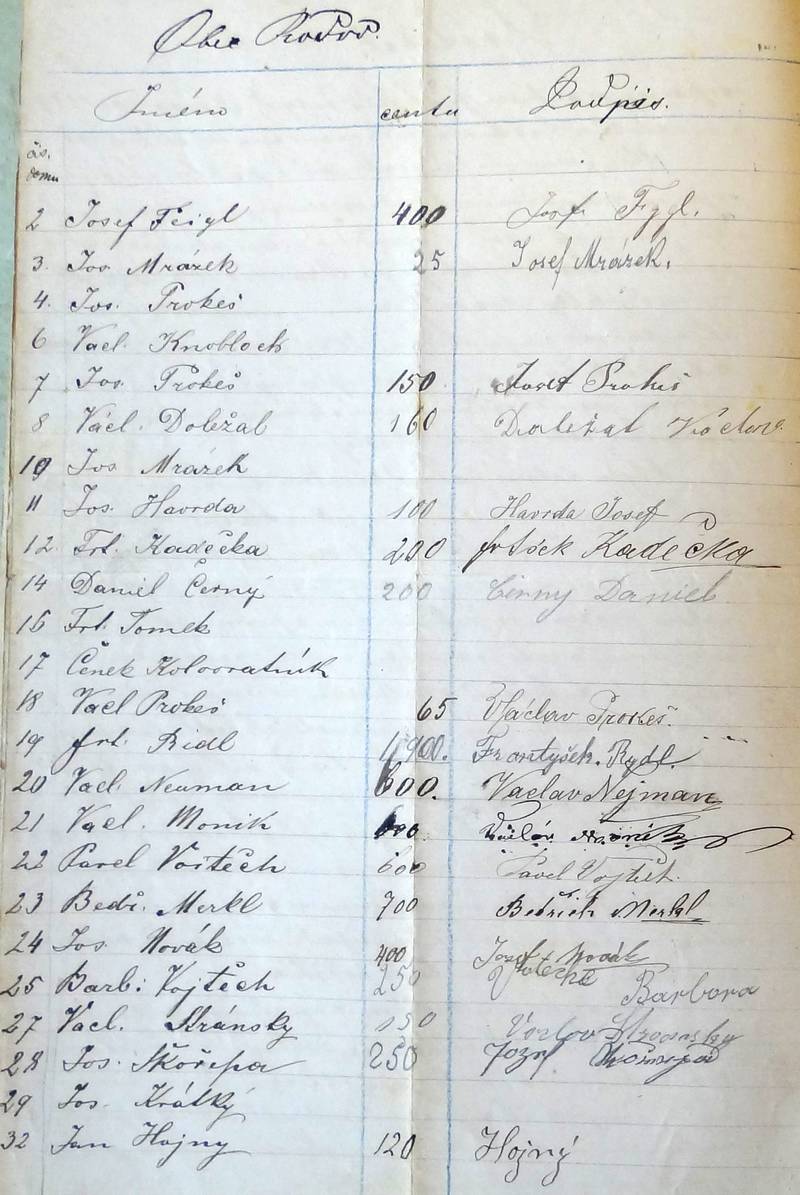 Obec Rodov.
Jméno centů Podpis.
čís.
domu
2 Josef Feigl 400 Josef Fygl.
3. Jos Mrázek 25 Josef Mrázek.
4. Jos. Prokeš
6 Vacl. Knobloch
7 Jos. Prokeš 150 Josef Prokeš
8 Václ. Doležal 160 Doležal Václav
10 Jos Mrázek
11 Jos. Havrda 100 Havrda Josef
12. Frt. Kadečka 200 Kadečka
14 Daniel Černý 200 Černy Daniel
16 Frt. Tomek
17 Čeněk Kolovratník
18 Vacl Prokeš 65 Václav Prokeš.
19 frt. Ridl 900. Frantyšek. Rydl.
20 Vacl. Neuman 600. Vaclav Nejman
21 Vacl. Moník 600
22 Pavel Vojtěch 600 Pavel Vojtěch.
23 Bedř. Merkl 700 Bedřich Merkl
24 Jos. Novák 400 Josef Novák
25 Barb. Vojtěch 250 Barbora
27 Vacl. Stránsky 150 Stransky
28 Jos. Skořepa 250
29 Jos. Krátký
32 Jan Hojny 120 Hojný